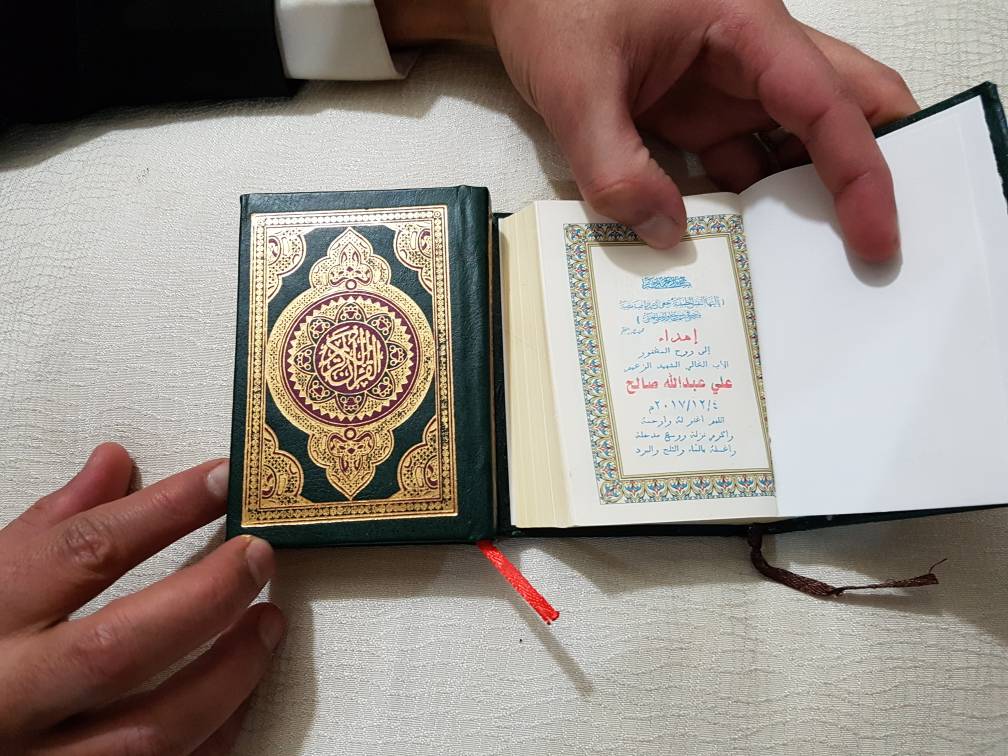 القرآن الكريم
إهداء
إلى روح المغفور
الأب الغالي الشهيد الزعيم
علي عبدالله صالح
٢٠١٧/١٢/٤م
اللهم أغفر لة وأرحمة
وأكرم نزلة ووسع مدخلة
وأغسلة بالماء والثلج والبرد